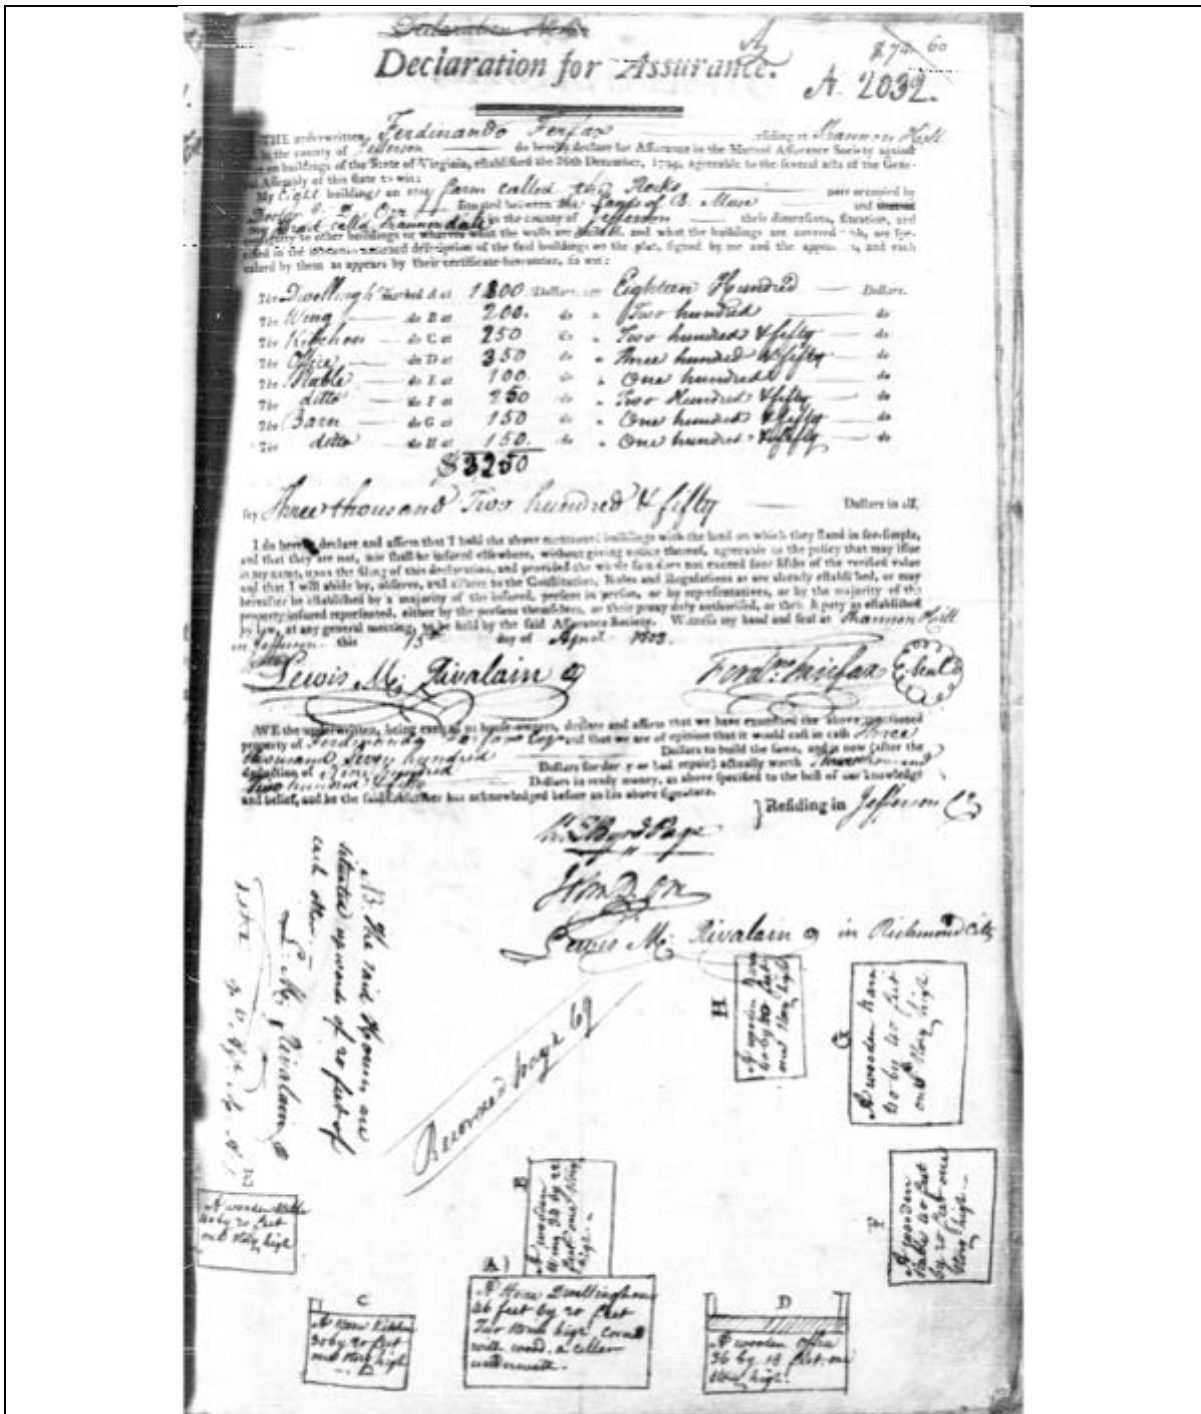 Declaration for Assurance.
A. 2032.
THE underwritten, Ferdinando Ferfax residing at Shannon Hill
in the county of Jefferson do hereby declare for Assurance in the Mutual Assurance Society against
Fire on buildings of the State of Virginia, established the 26th December, 1794, agreeable to the several acts of the Gene-
ral Assembly of this state to wit:
My Eight buildings on my farm called the Rocks now occupied by
Doctor situated between the of B. Muse and
my called Shannondale in the county of Jefferson their dimensions, situation, and
contiguity to other buildings or wharves what the walls are built of, and what the buildings are covered with, are spe-
cified in the description of the said buildings on the plat, signed by me and the appraisers, and each
valued by them as appears by their certificate hereunder, to wit:
The Dwelling h marked A at 1800 Dollars, say Eighteen Hundred Dollars.
The Wing do B at 200. do " Two hundred do
The Kitchen do C at 250 do " Two hundred & fifty do
The Office do D at 350 do " Three hundred & fifty do
The Stable do E at 100 do " One hundred do
The ditto do F at 250 do " Two Hundred & fifty do
The Barn do G at 150 do " One hundred & fifty do
The ditto do H at 150. do " One hundred & fifty do
$3250
say Three thousand Two hundred & fifty Dollars in all.
I do hereby declare and affirm that I hold the above mentioned buildings with the land on which they stand in fee-simple,
and that they are not, nor shall be insured elsewhere, without giving notice thereof, agreeable to the policy that may issue
in my name, upon the filing of this declaration, and provided the whole sum does not exceed four fifths of the verified value
and that I will abide by, observe, and adhere to the Constitution, Rules and Regulations as are already established, or may
hereafter be established by a majority of the insured, present in person, or by representatives, or by the majority of the
property insured represented, either by the persons themselves, or their proxy duly authorised, or their as established
by law, at any general meeting, to be held by the said Assurance Society. Witness my hand and seal at Shannon Hill
in Jefferson this 15th day of April 1803.
Lewis M. Rivalain
Ferdno. Fairfax Seal
WE the underwritten, being each of us house-owners, declare and affirm that we have examined the above mentioned
property of Ferdinando Esqr and that we are of opinion that it would cost in cash three
thousand Seven hundred Dollars to build the same, and is now (after the
deduction of Dollars for decay or bad repair) actually worth three thousand
Two hundred & fifty Dollars in ready money, as above specified to the best of our knowledge
and belief, and he the said subscriber has acknowledged before us his above signature.
Residing in Jefferson Cy
Wm. Byrd Page
Lewis M. Rivalain in Richmond City
NB. The said Houses are
situated upwards of 20 feet of
each other.
L. M. Rivalain
Recorded page 69
H
A wooden Barn
by feet
one Story high
G
A wooden Barn
by 40 feet
one Story high
F
A wooden
Stable 40 feet
by 20 feet one
Story high
E
A wooden Stable
by 20 feet
one Story high
B
A wooden
Wing by
feet one Story
high
A
A Stone Dwelling house
46 feet by 20 feet
Two Stories high, Covered
with wood, a cellar
underneath.
C
A Stone Kitchen
30 by 20 feet
one Story high
D
A wooden office
36 by 18 feet one
Story high.